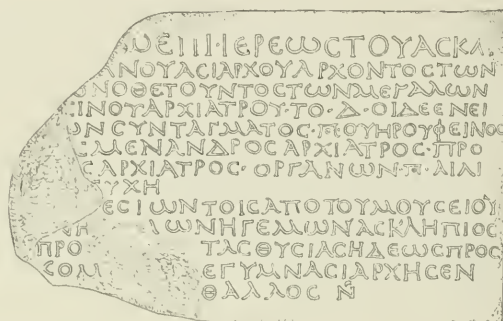 ΘΕΙΙΙ·ΙΕΡΕωCΤΟΥΑCΚΛ
ΑΝΟΥΑCΙΑΡΧΟΥΑΡΧΟΝΤΟCΤωΝ
ΝΟΘΕΤΟΥΝΤΟCΤωΝΜΕΓΑΛωΝ
CΙΝΟΥΑΡΧΙΑΤΡΟΥΤΟ·Δ·ΟΙΔΕΕΝΕΙ
ωΝCΥΝΤΑΓΜΑΤΟC·Π·ΟΥΗΡΟΥΦΕΙΝΟC
CΜΕΝΑΝΔΡΟCΑΡΧΙΑΤΡΟC·ΠΡΟ
CΑΡΧΙΑΤΡΟC·ΟΡΓΑΝωΝ·Π·ΑΙΛΙ
ΥΧΗ
ΕCΙωΝΤΟΙCΑΠΟΤΟΥΜΟΥCΕΙΟΥ
ΙωΝΗΓΕΜωΝΑCΚΛΗΠΙΟC
ΠΡΟ ΤΑCΘΥCΙΑCΗΔΕωCΠΡΟC
CΟΜ ΕΓΥΜΝΑCΙΑΡΧΗCΕΝ
ΘΑΛΛΟC Ν